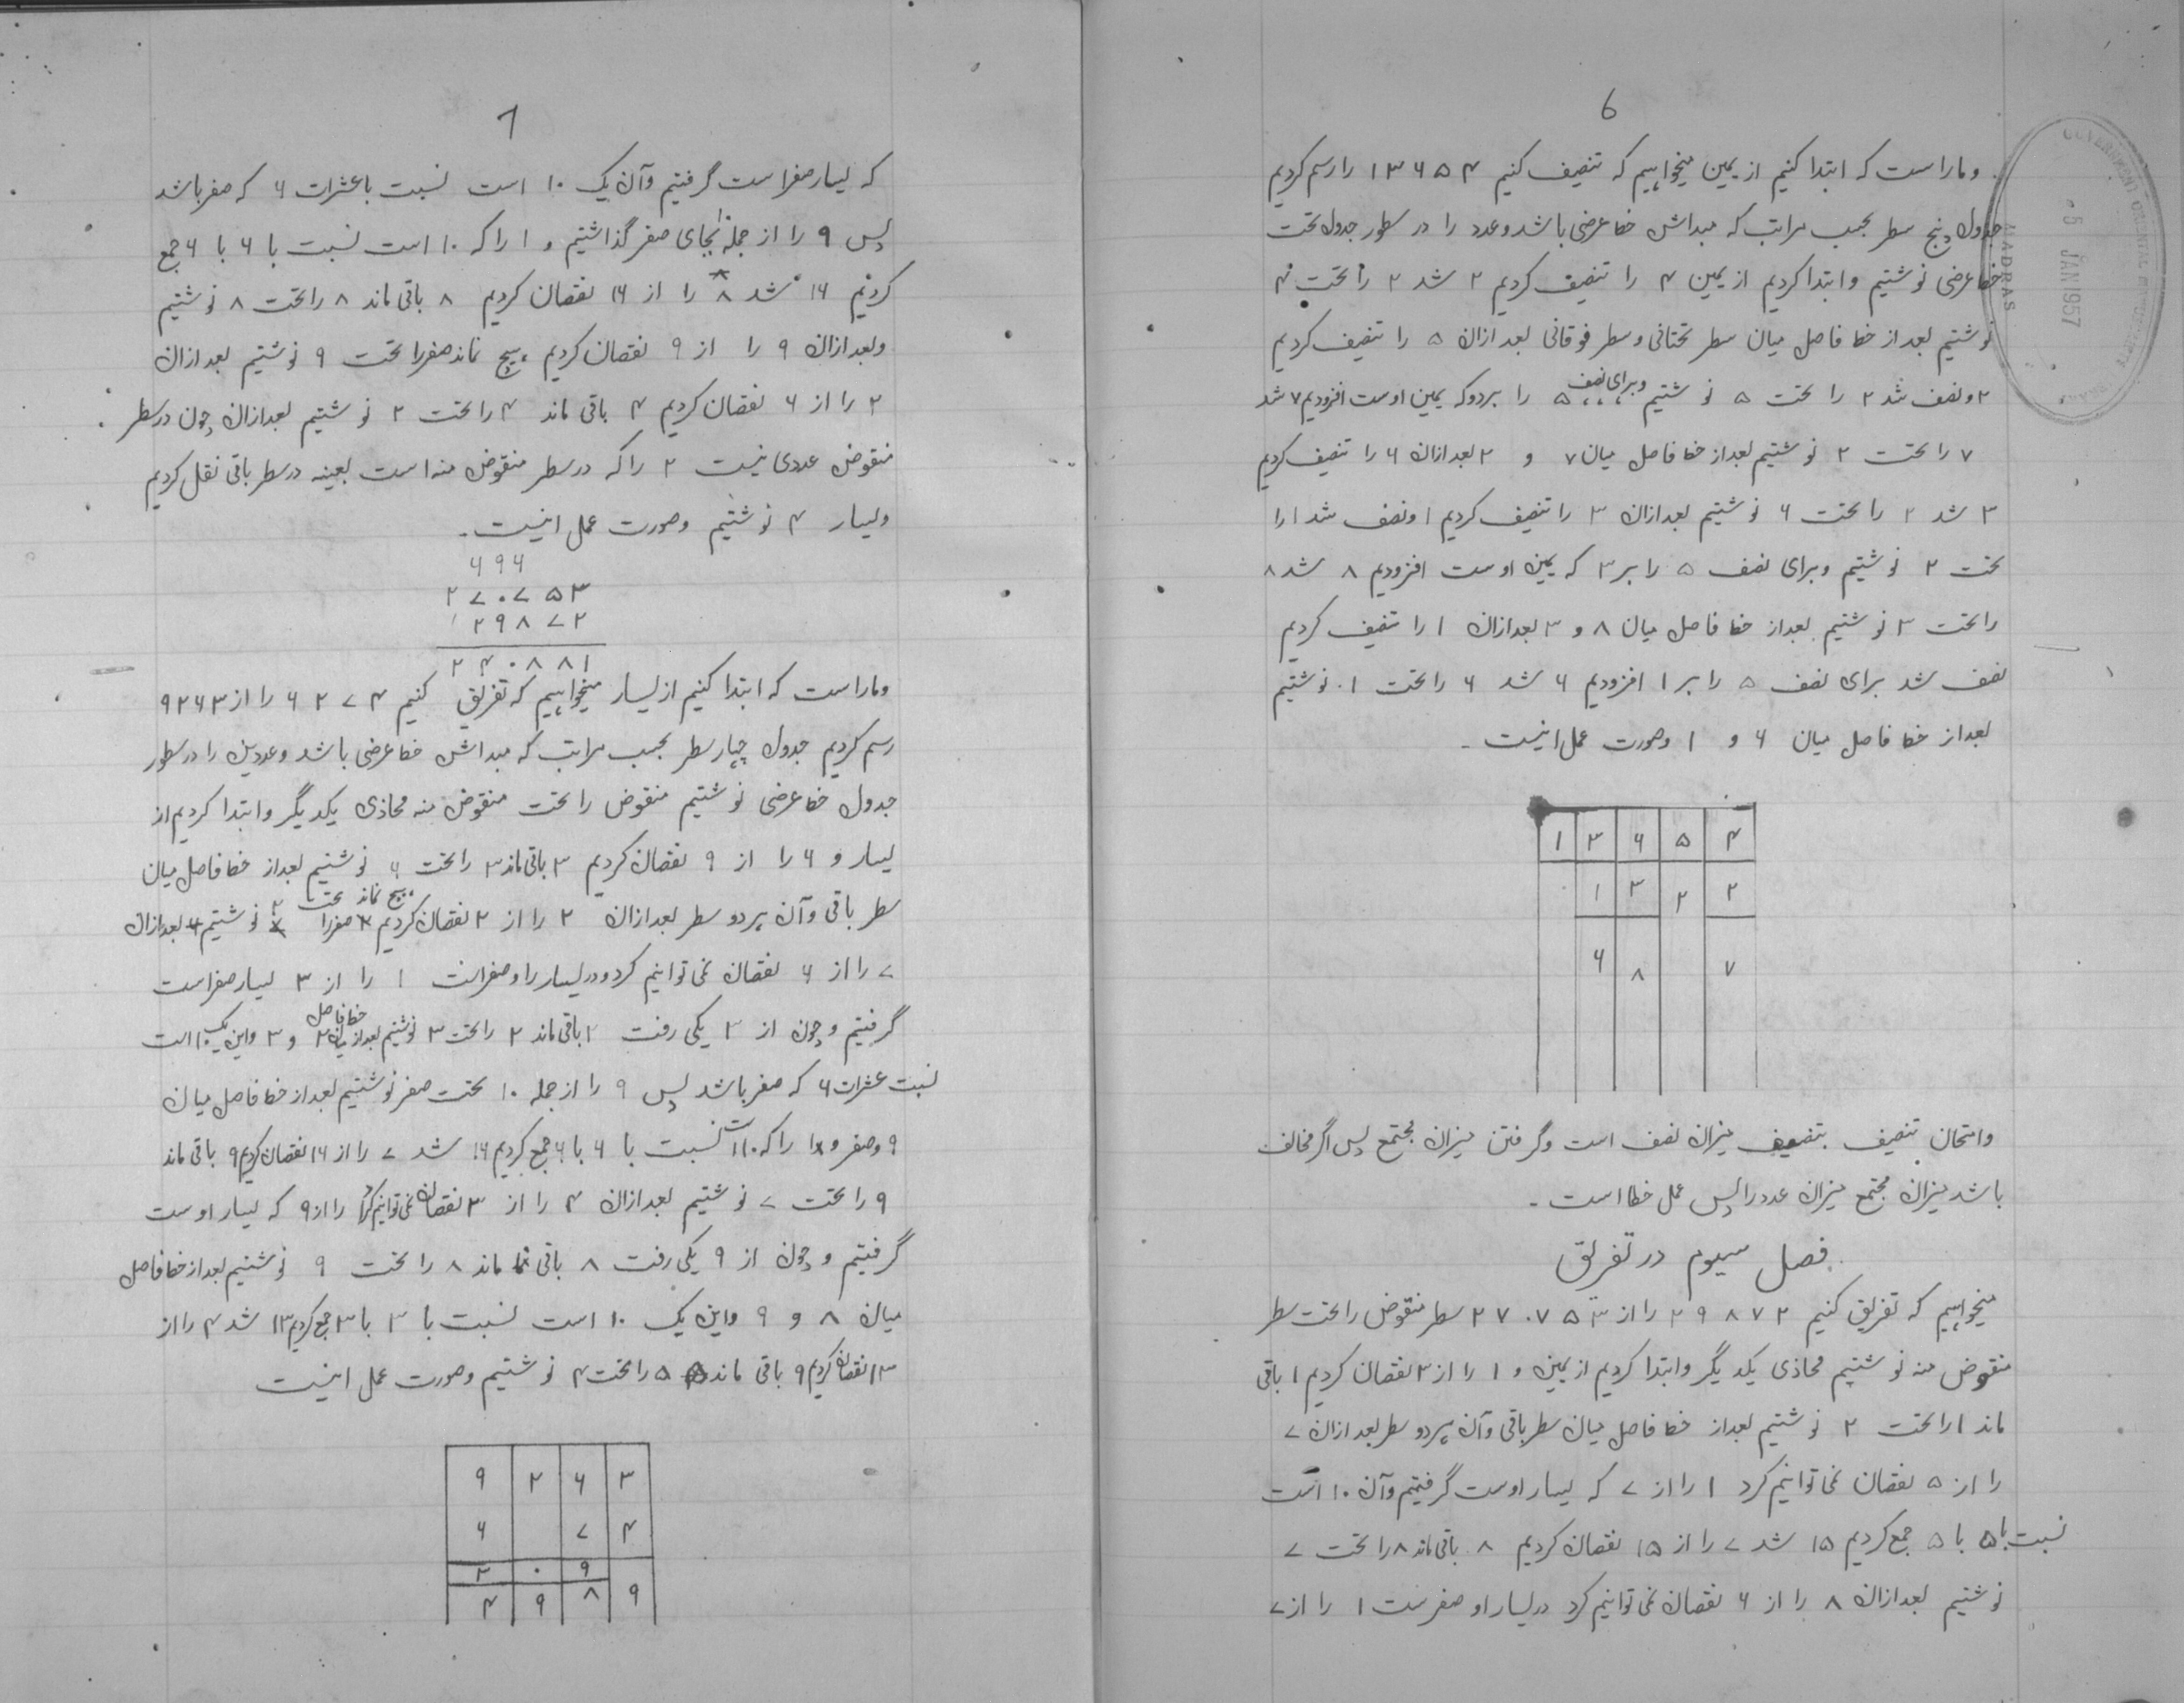 6
وماراست که ابتدا کنیم از یمین میخواهیم که تنصیف کنیم ۱۳۶۵۴ را رسم کردیم
جدول پنج سطر بحسب مراتب که مبداش خط عرضی باشد وعدد را در سطور جدول تحت
خط عرضی نوشتیم وابتدا کردیم از یمین ۴ را تنصیف کردیم ۲ شد ۲ را تحت ۴
نوشتیم بعد از خط فاصل میان سطر تحتانی وسطر فوقانی بعد ازان ۵ را تنصیف کردیم
۲ ونصف شد ۲ را تحت ۵ نوشتیم وبرای نصف ۵ را بردو که یمین اوست افزودیم ۷ شد
۷ را تحت ۲ نوشتیم بعد از خط فاصل میان ۷ و ۲ بعد ازان ۶ را تنصیف کردیم
۳ شد ۳ را تحت ۶ نوشتیم بعد ازان ۳ را تنصیف کردیم ۱ ونصف شد ۱ را
تحت ۳ نوشتیم وبرای نصف ۵ را بر ۳ که یمین اوست افزودیم ۸ شد ۸
را تحت ۳ نوشتیم بعد از خط فاصل میان ۸ و ۳ بعد ازان ۱ را تنصیف کردیم
نصف شد برای نصف ۵ را بر ۱ افزودیم ۶ شد ۶ را تحت ۱ نوشتیم
بعد از خط فاصل میان ۶ و ۱ وصورت عمل اینست -
۱ ۳ ۶ ۵ ۴
۱ ۳ ۲ ۲
۶ ۸ ۷
وامتحان تنصیف بتضعیف میزان نصف است وگرفتن میزان مجتمع پس اگر مخالف
باشد میزان مجتمع میزان عدد را پس عمل خطا است -
فصل سیوم در تفریق
میخواهیم که تفریق کنیم ۲۹۸۷۲ را از ۲۷۰۷۵۳ سطر منقوض را تحت سطر
منقوض منه نوشتیم محاذی یکدیگر وابتدا کردیم از یمین و ۲ را از ۳ نقصان کردیم ۱ باقی
ماند ۱ را تحت ۲ نوشتیم بعد از خط فاصل میان سطر باقی وآن هردو سطر بعد ازان ۷
را از ۵ نقصان نمی توانیم کرد ۱ را از ۷ که یسار اوست گرفتیم وآن ۱۰ است
نسبت با ۵ با ۵ جمع کردیم ۱۵ شد ۷ را از ۱۵ نقصان کردیم ۸ باقی ماند ۸ را تحت ۷
نوشتیم بعد ازان ۸ را از ۶ نقصان نمی توانیم کرد در یسار او صفرست ۱ را از ۷
7
که یسار صفراست گرفتیم وآن یک ۱۰ است نسبت با عشرات ۶ که صفر باشد
پس ۹ را از جمله آن بجای صفر گذاشتیم و ۱ را که ۱۰ است نسبت با ۶ با ۶ جمع
کردیم ۱۶ شد ۸ را از ۱۶ نقصان کردیم ۸ باقی ماند ۸ را تحت ۸ نوشتیم
وبعد ازان ۹ را از ۹ نقصان کردیم هیچ نماند صفر را تحت ۹ نوشتیم بعد ازان
۲ را از ۶ نقصان کردیم ۴ باقی ماند ۴ را تحت ۲ نوشتیم بعد ازان چون در سطر
منقوض عددی نیست ۲ را که در سطر منقوض منه است بعینه در سطر باقی نقل کردیم
ویسار ۴ نوشتیم وصورت عمل اینست -
۶ ۹ ۶
۲ ۷ ۰ ۷ ۵ ۳
۲ ۹ ۸ ۷ ۲
۲ ۴ ۰ ۸ ۸ ۱
وماراست که ابتدا کنیم از یسار میخواهیم که تفریق کنیم ۶۲۷۴ را از ۹۲۶۳
رسم کردیم جدول چهار سطر بحسب مراتب که مبداش خط عرضی باشد وعددین را در سطور
جدول خط عرضی نوشتیم منقوض را تحت منقوض منه محاذی یکدیگر وابتدا کردیم از
یسار و ۶ را از ۹ نقصان کردیم ۳ باقی ماند ۳ را تحت ۶ نوشتیم بعد از خط فاصل میان
سطر باقی وآن هردو سطر بعد ازان ۲ را از ۲ نقصان کردیم هیچ نماند صفر را تحت ۲ نوشتیم بعد ازان
۷ را از ۶ نقصان نمی توانیم کرد ودر یسار او صفراست ۱ را از ۳ یسار صفراست
گرفتیم وچون از ۳ یکی رفت ۲ باقی ماند ۲ را تحت ۳ نوشتیم بعد از خط فاصل میان ۲ و ۳ واین یک ۱۰ است
نسبت عشرات ۶ که صفر باشد پس ۹ را از جمله ۱۰ تحت صفر نوشتیم بعد از خط فاصل میان
۹ وصفر و ۱ را که ۱۰ است نسبت با ۶ با ۶ جمع کردیم ۱۶ شد ۷ را از ۱۶ نقصان کردیم ۹ باقی ماند
۹ را تحت ۷ نوشتیم بعد ازان ۴ را از ۳ نقصان نمی توانیم کرد ۱ را از ۹ که یسار اوست
گرفتیم وچون از ۹ یکی رفت ۸ باقی ماند ۸ را تحت ۹ نوشتیم بعد از خط فاصل
میان ۸ و ۹ واین یک ۱۰ است نسبت با ۳ با ۳ جمع کردیم ۱۳ شد ۴ را از
۱۳ نقصان کردیم ۹ باقی ماند ۵ را تحت ۴ نوشتیم وصورت عمل اینست
۹ ۲ ۶ ۳
۶ ۷ ۴
۳ ۰ ۹
۴ ۹ ۸ ۹
MADRAS
5 JAN 1957